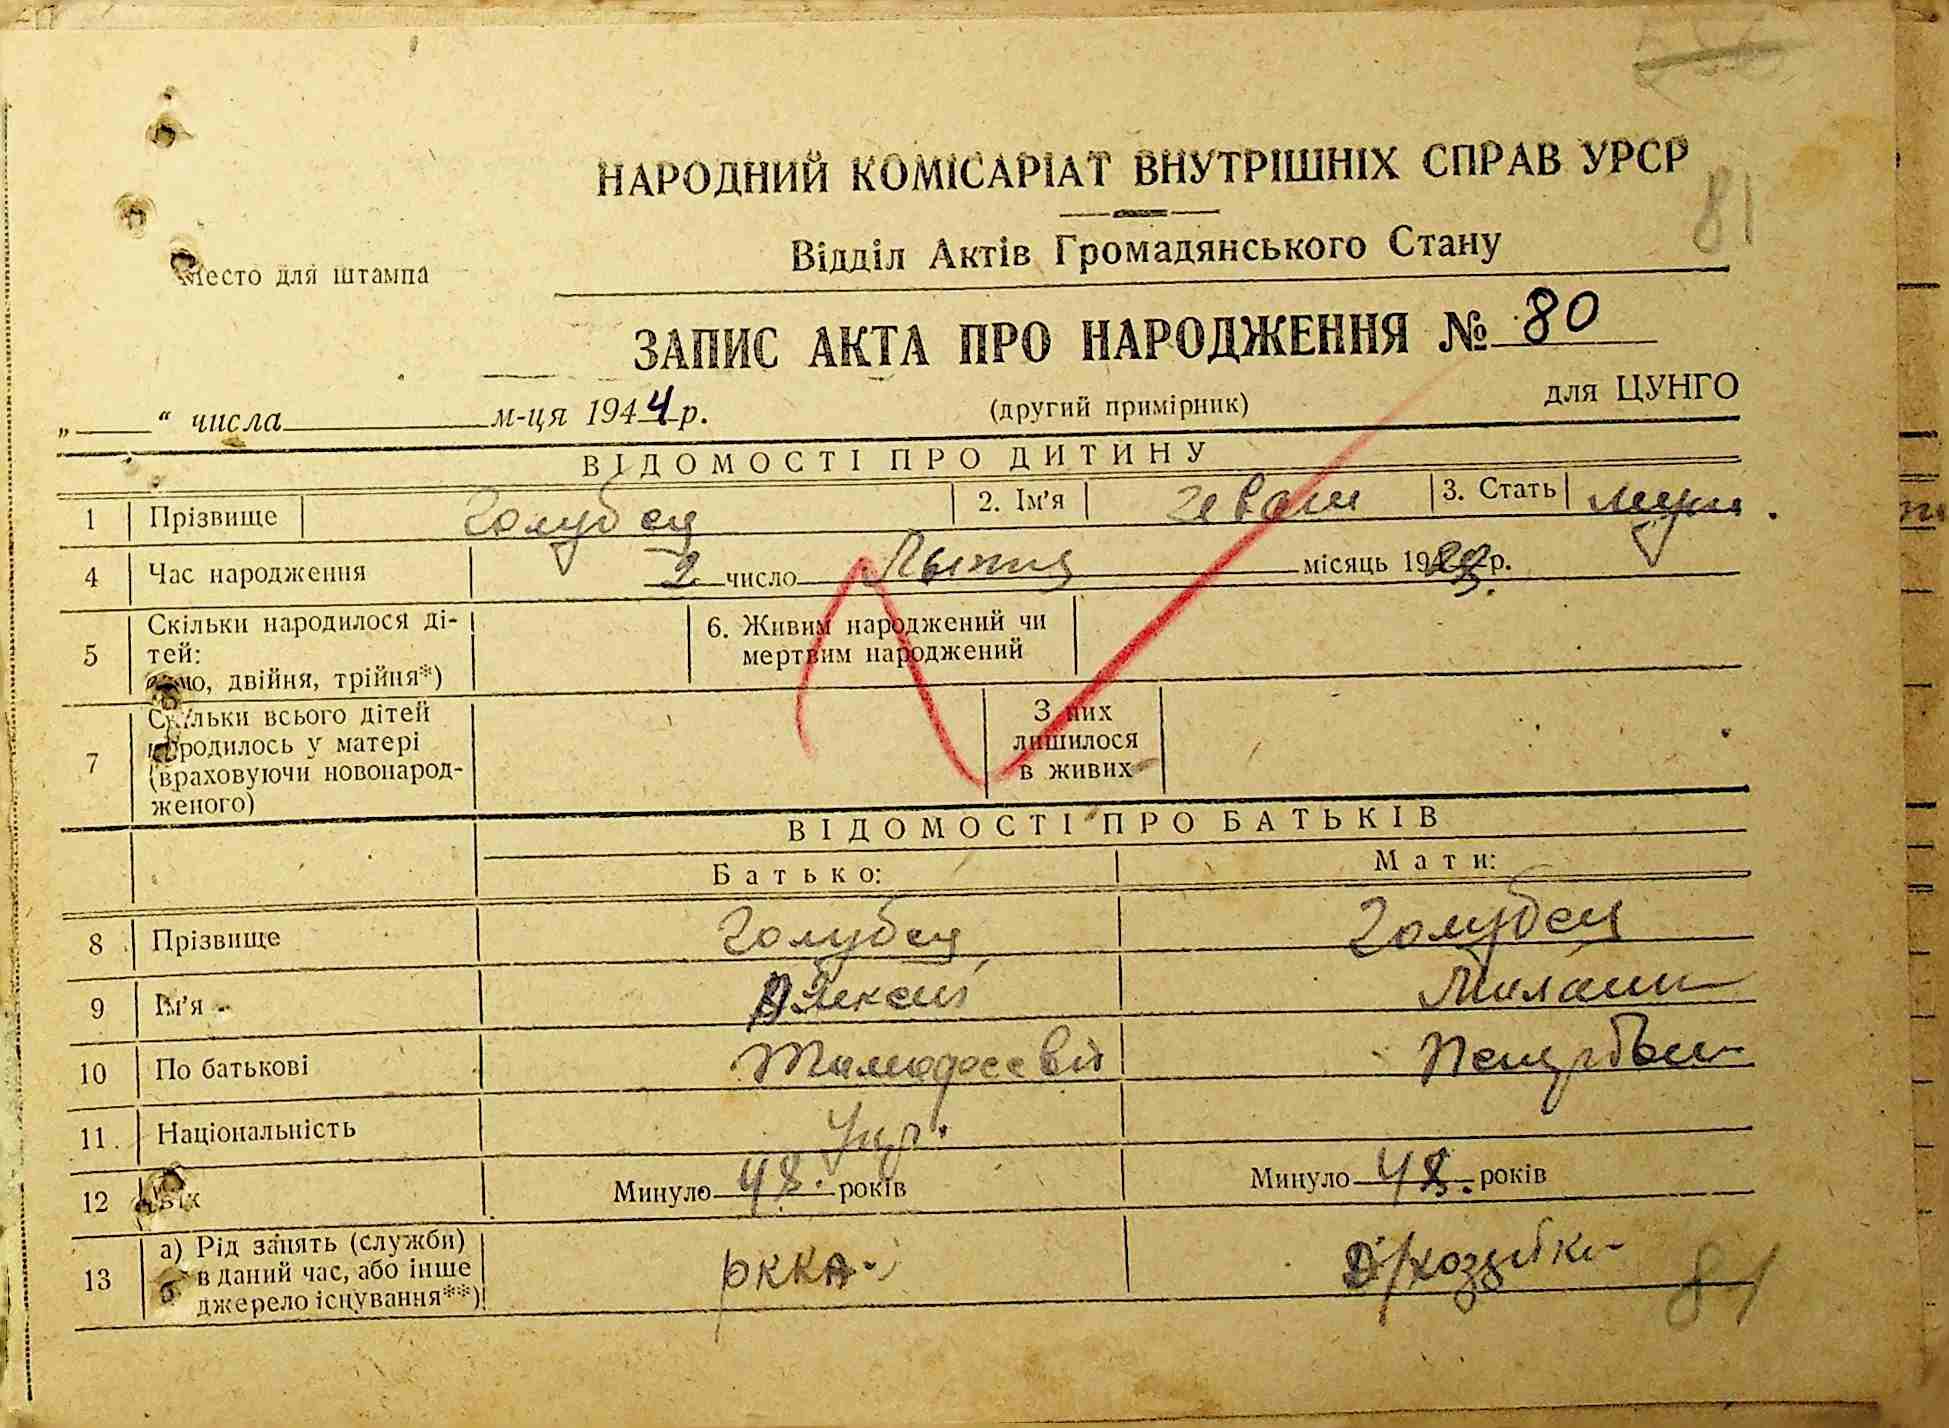 НАРОДНИЙ КОМІСАРІАТ ВНУТРІШНІХ СПРАВ УРСР
81
Відділ Актів Громадянського Стану
Место для штампа
ЗАПИС АКТА ПРО НАРОДЖЕННЯ № 80
„ “ числа м-ця 1944 р. (другий примірник) для ЦУНГО
ВІДОМОСТІ ПРО ДИТИНУ
1 Прізвище Голубец 2. Ім'я Иван 3. Стать
4 Час народження 2 число місяць 19 р.
5 Скільки народилося ді-
тей:
одно, двійня, трійня*)
6. Живим народжений чи
мертвим народжений
7 Скільки всього дітей
народилось у матері
(враховуючи новонарод-
женого)
З них
лишилося
в живих
ВІДОМОСТІ ПРО БАТЬКІВ
Батько: Мати:
8 Прізвище Голубец Голубец
9 Ім'я Алексей
10 По батькові
11. Національність Укр.
12 Вік Минуло 48. років Минуло 48. років
13 а) Рід занять (служби)
в даний час, або інше
джерело існування**)
РККА
81